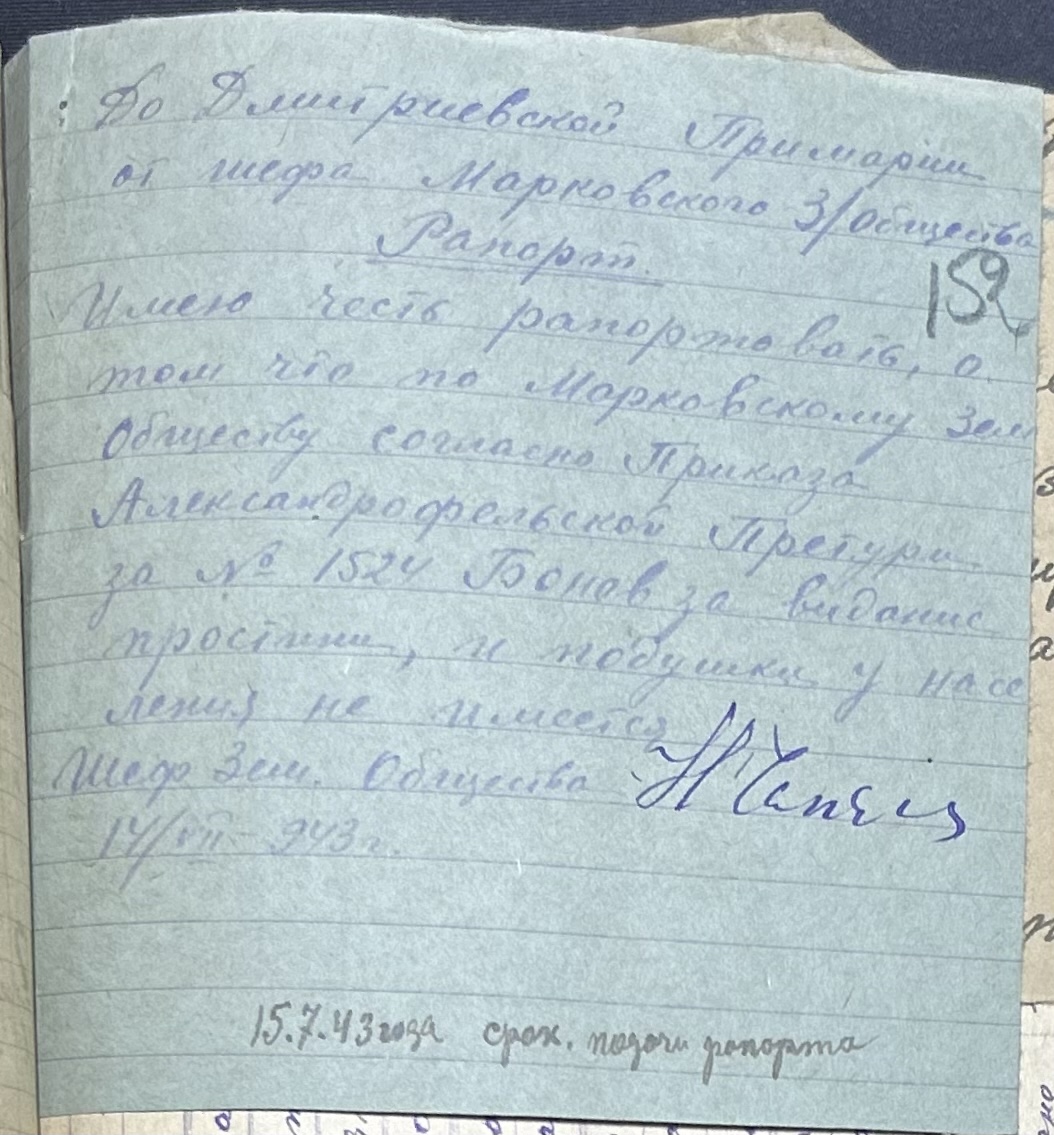 До Дмитриевской Примарии
от шефа Марковского З/Общества
Рапорт.
159
Имею честь рапортовать, о
том что по Марковскому Зем
Обществу согласно Приказа
Александрофельской Претури
за № 1524 Бонов за видание
простини, и подушки у насе
ления не имеется
Шеф Зем. Общества
14/VII 943 г.
15.7.43 года срок. подачи рапорта